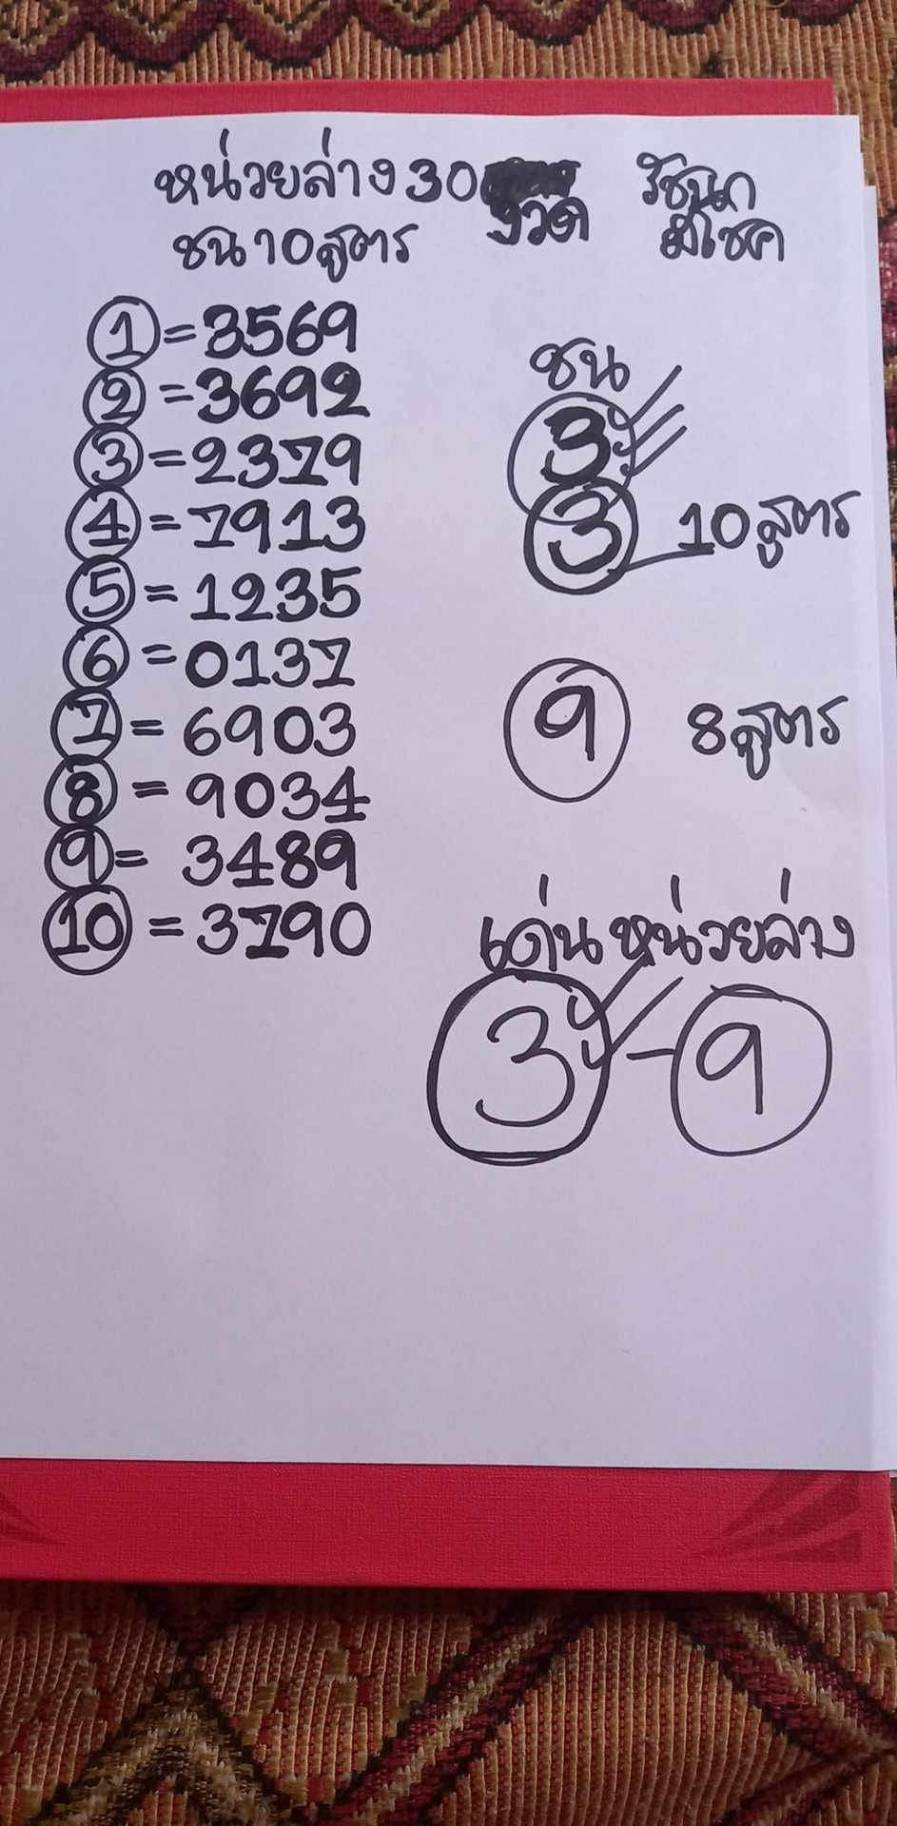 หน่วยล่าง 30 งวด
ชน 10 สูตร
รัชนก
มีโชค
① = 3569
② = 3692
③ = 2379
④ = 7913
⑤ = 1235
⑥ = 0137
⑦ = 6903
⑧ = 9034
⑨ = 3489
⑩ = 3790
ชน
3
3 10 สูตร
9 8 สูตร
เด่นหน่วยล่าง
3 - 9